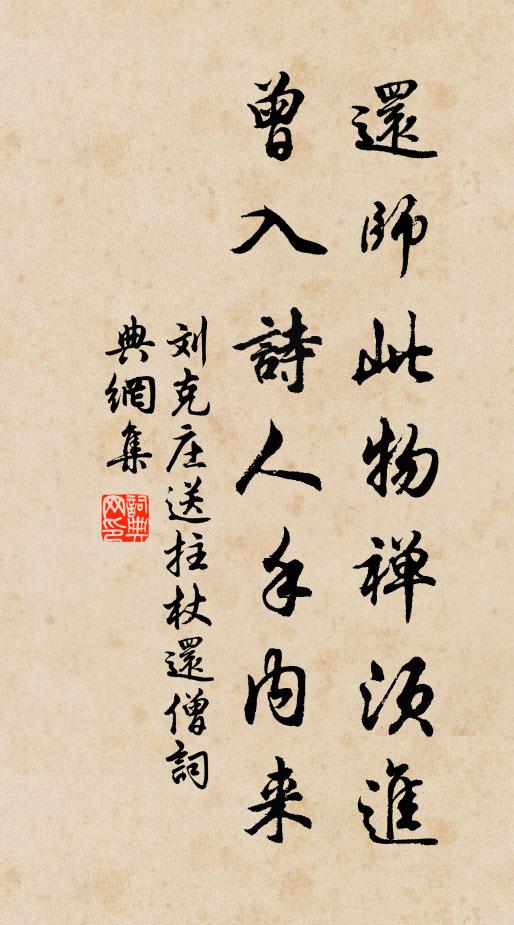 還師此物禅須進
曾入詩人手内来
刘克庄送拄杖還僧詞
典網集
詞典網印